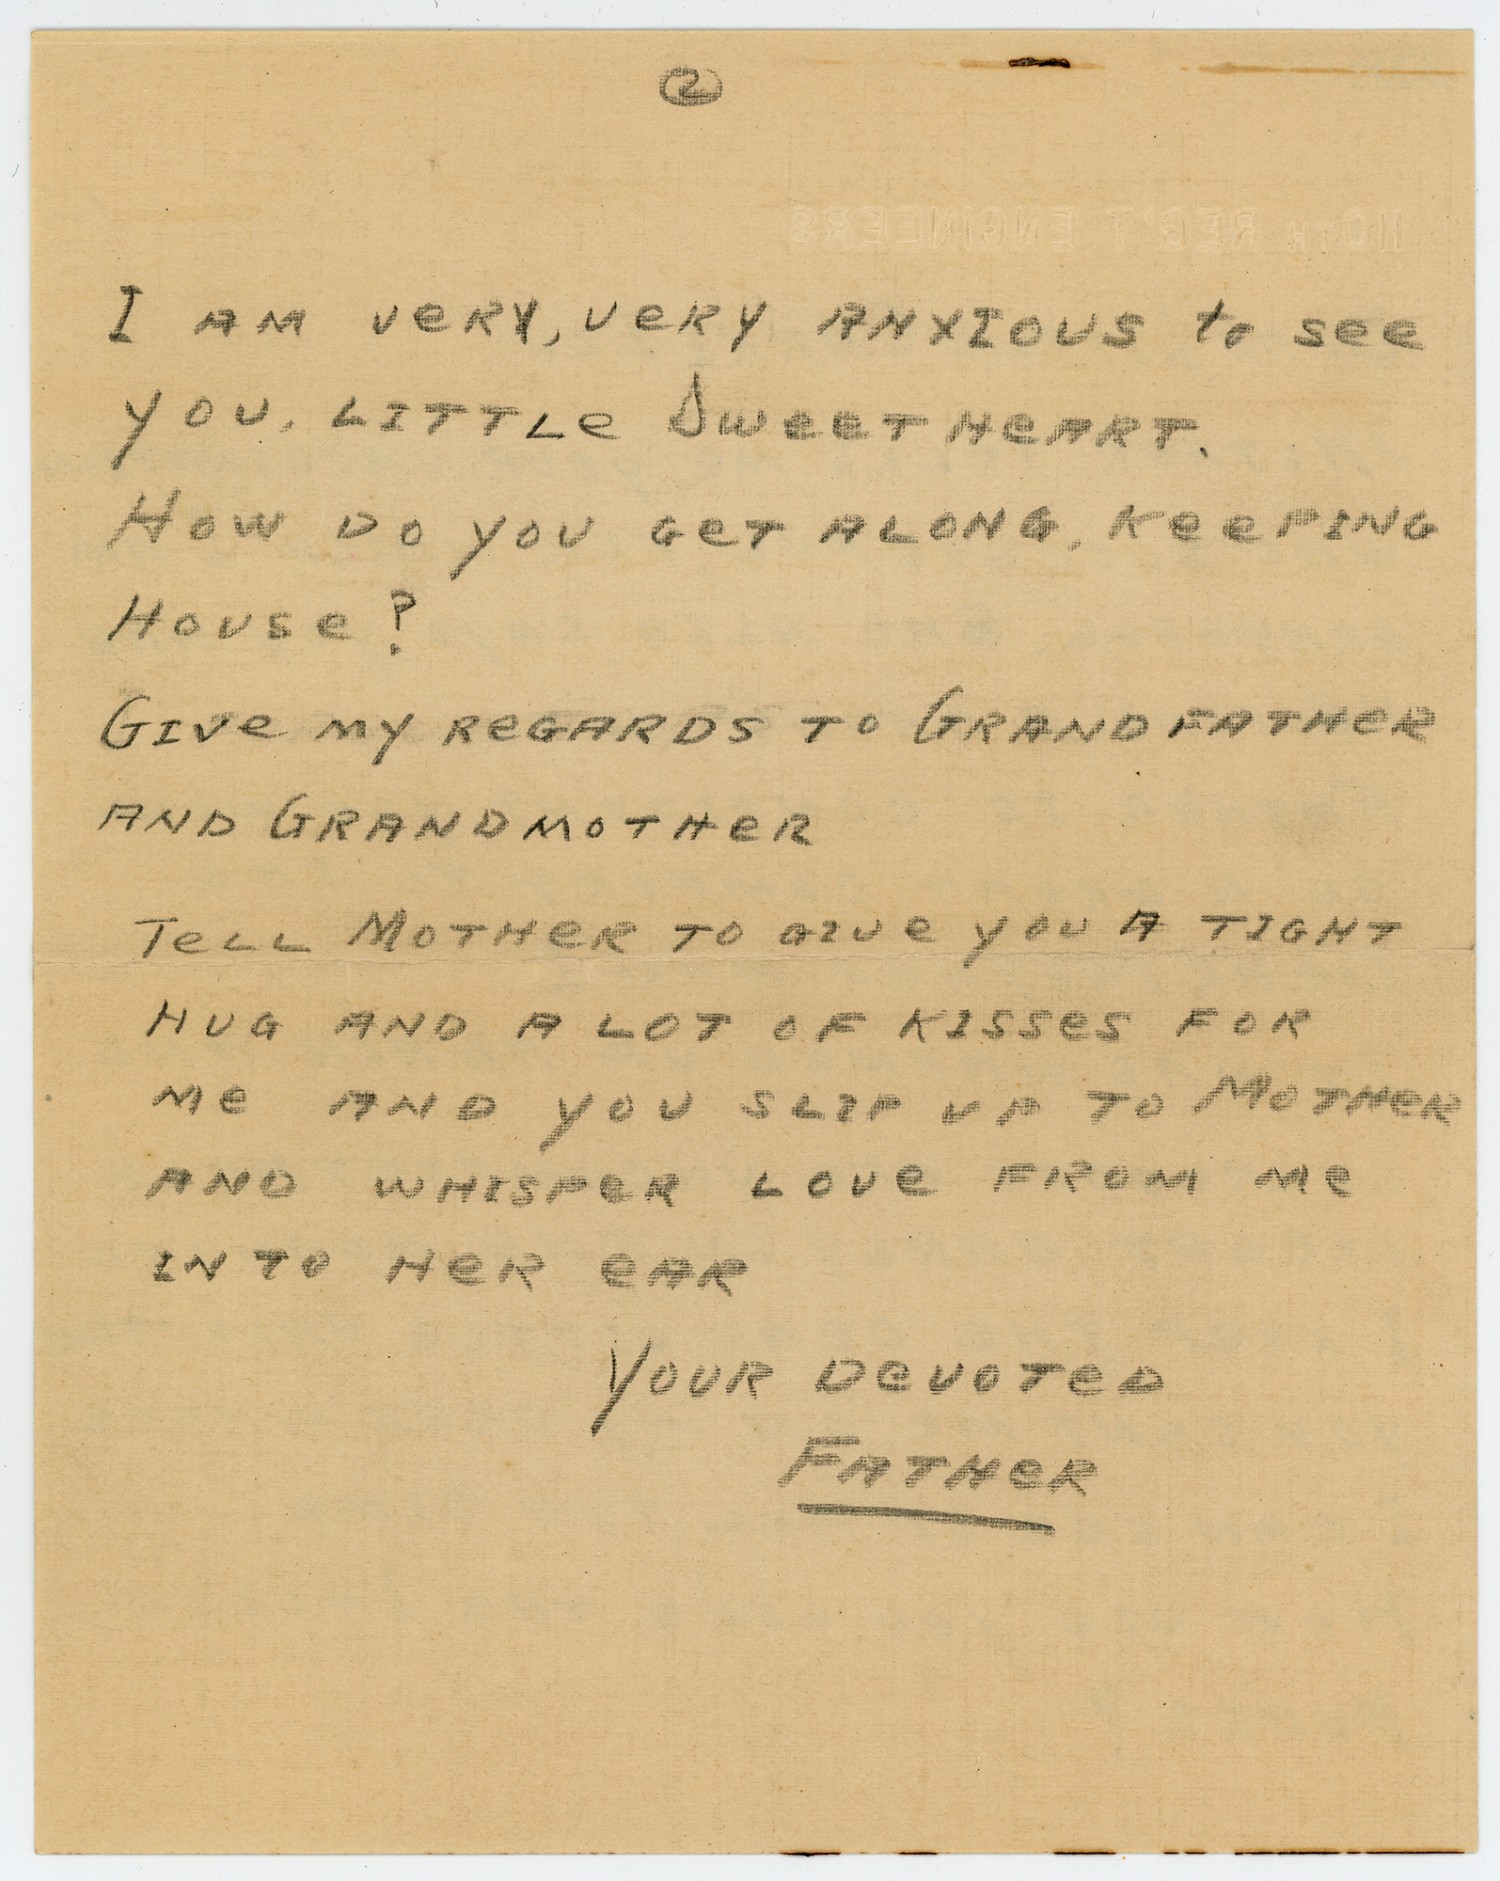 2
110TH REG'T ENGINEERS
I AM VeRY, VeRY ANXIOUS to see
YOU, LITTLe SweeTHeART.
HOW DO YOU GeT ALONG, KeePING
House?
GIVe MY ReGARDS TO GRANDFATHeR
AND GRANDMOTHeR
TeLL MOTHeR TO GIVe YOU A TIGHT
HUG AND A LOT OF KISSeS FOR
Me AND YOU SLIP UP TO MOTHeR
AND WHISPeR LOVe FROM Me
INTO HeR eAR
YOUR DeVOTeD
FATHeR